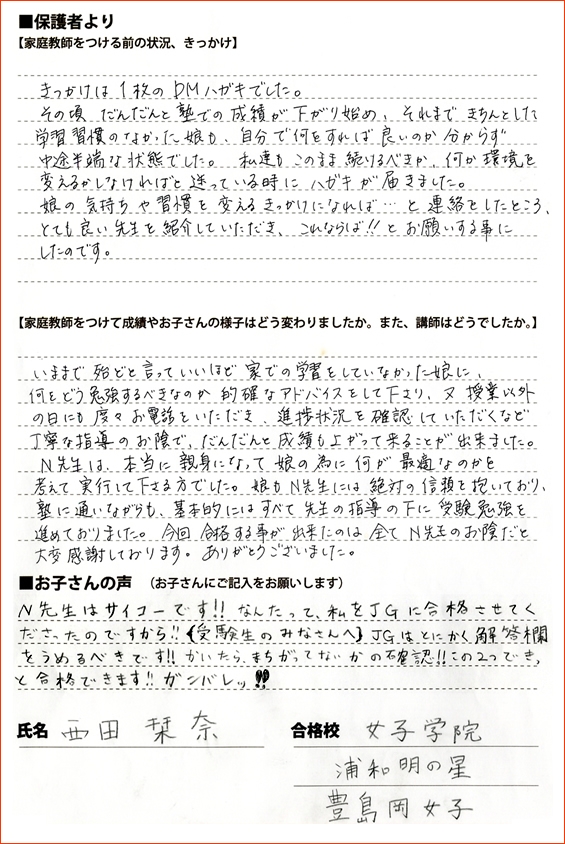 ■保護者より
【家庭教師をつける前の状況、きっかけ】
きっかけは1枚のDMハガキでした。
その頃 だんだんと塾での成績が下がり始め、それまできちんとした
学習習慣のなかった娘も、自分で何をすれば良いのか分からず
中途半端な状態でした。私達もこのまま続けるべきか、何か環境を
変えるかしなければと迷っている時にハガキが届きました。
娘の気持ちや習慣を変えるきっかけになれば…と連絡をしたところ、
とても良い先生を紹介していただき、これならば!!とお願いする事に
したのです。
【家庭教師をつけて成績やお子さんの様子はどう変わりましたか。また、講師はどうでしたか。】
いままで殆どと言っていいほど家での学習をしていなかった娘に、
何をどう勉強するべきなのか的確なアドバイスをして下さり、又授業以外
の日にも度々お電話をいただき、進捗状況を確認していただくなど
丁寧な指導のお陰で、だんだんと成績も上がって来ることが出来ました。
N先生は、本当に親身になって娘の為に何が最適なのかを
考えて実行して下さる方でした。娘もN先生には絶対の信頼を抱いており、
塾に通いながらも、基本的にはすべて先生の指導の下に受験勉強を
進めておりました。今回合格する事が出来たのは全てN先生のお陰だと
大変感謝しております。ありがとうございました。
■お子さんの声 （お子さんにご記入をお願いします）
N先生はサイコーです!! なんたって、私をJGに合格させてく
ださったのですから!!《受験生のみなさんへ》JGはとにかく解答欄
をうめるべきです!! かいたら、まちがってないかの確認!! この2つでき、
と合格できます!! ガンバレッ!!
氏名 西田 栞奈
合格校 女子学院
浦和明の星
豊島岡女子